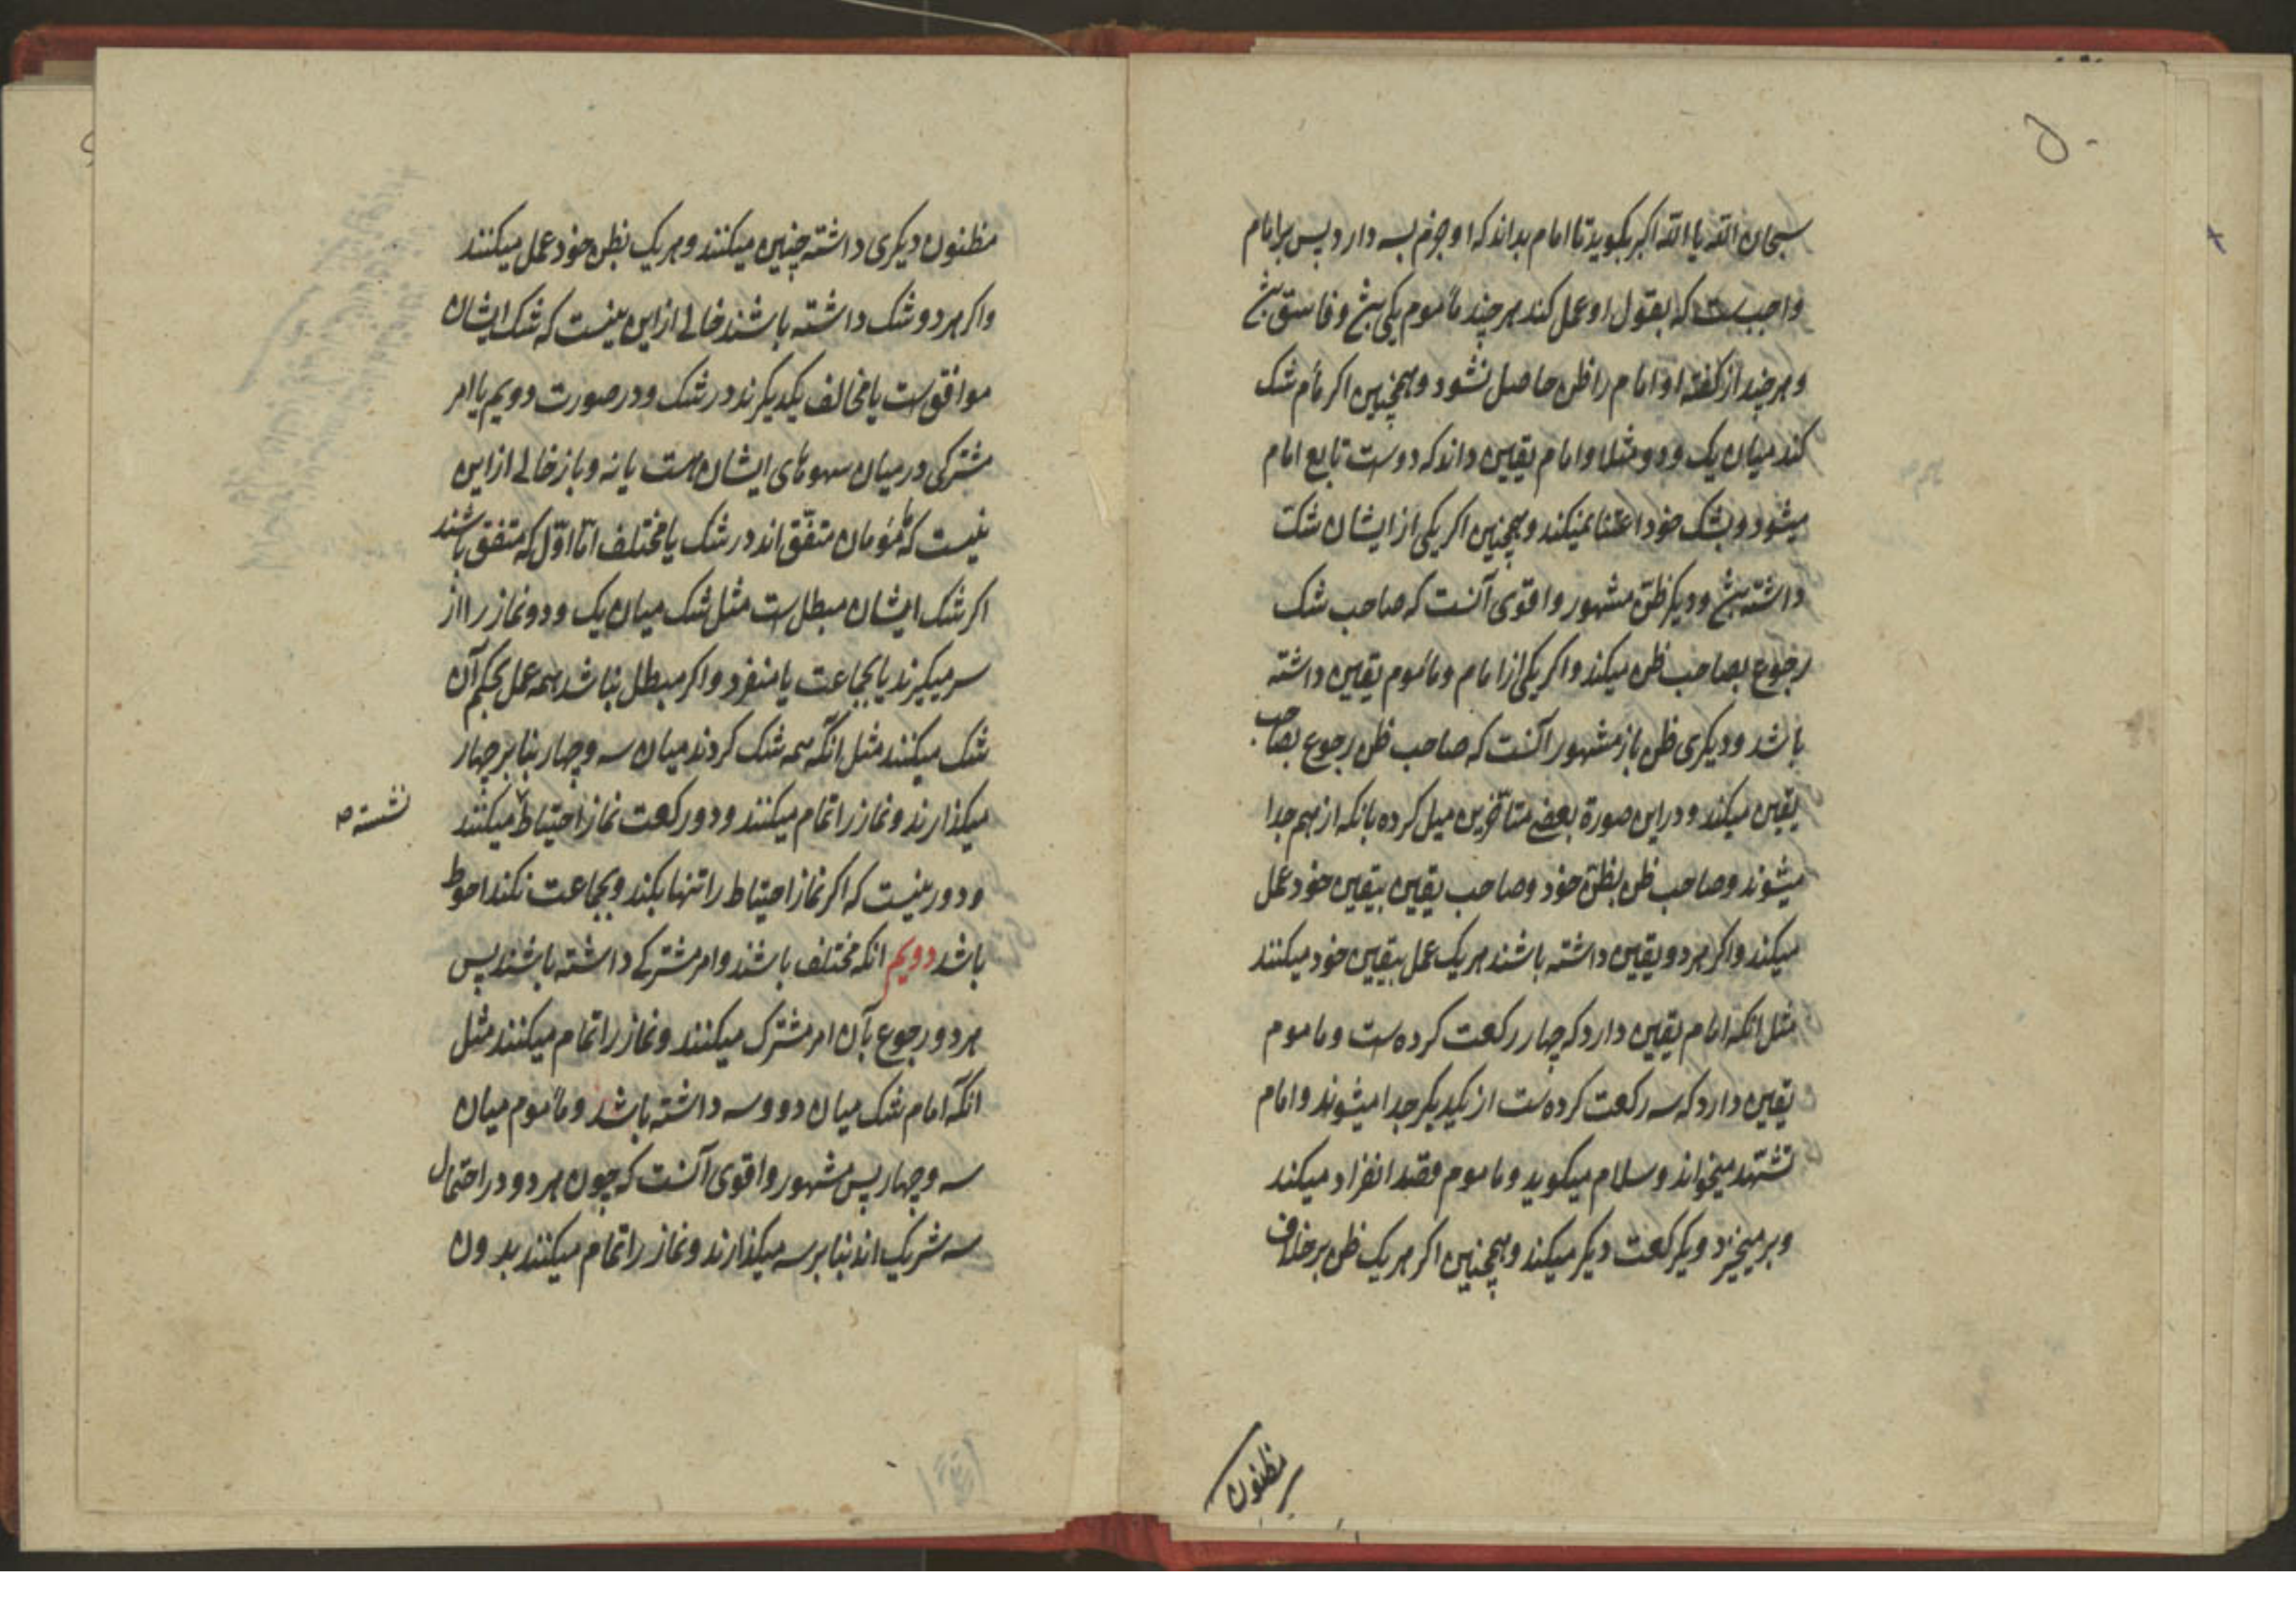 ۵۰
سبحان الله یا الله اکبر بکوید تا امام بداند که او جزم بسه دارد پس بر امام
واجب ست که بقول او عمل کند هر چند مأموم یکی بش و فاسق بش
و هر چند از کفته او امام را ظن حاصل نشود و همچنین اکر مأم شک
کند میان یک و دو مثلا و امام یقین داند که دوست تابع امام
میشود و بشک خود اعتنا نمیکند و همچنین اکر یکی از ایشان شک
داشته بش و دیکر ظن مشهور و اقوی آنست که صاحب شک
رجوع بصاحب ظن میکند و اکر یکی از امام و مأموم یقین داشته
باشد و دیکری ظن باز مشهور آنست که صاحب ظن رجوع بصاحب
یقین میکند و در این صورة بعضے متأخرین میل کرده بانکه از هم جدا
میشوند و صاحب ظن بظن خود و صاحب یقین بیقین خود عمل
میکند و اکر هر دو یقین داشته باشند هر یک عمل بیقین خود میکنند
مثل انکه امام یقین دارد که چهار رکعت کرده ست و ماموم
یقین دارد که سه رکعت کرده ست از یکدیکر جدا میشوند و امام
تشهد میخواند و سلام میکوید و ماموم قصد انفراد میکند
و برمیخیزد و یکرکعت دیکر میکند و همچنین اکر هر یک ظن بر خلاف
مظنون
مظنون دیکری داشته چنین میکنند و هر یک بظن خود عمل میکنند
و اکر هر دو شک داشته باشند خالی از این نیست که شک ایشان
موافق ست یا مخالف یکدیکرند در شک و در صورت دویم یا امر
مشترکی در میان سهوهای ایشان هست یا نه و باز خالی از این
نیست که مأمومان متفق اند در شک یا مختلف امّا اوّل که متفق باشند
اکر شک ایشان مبطل ست مثل شک میان یک و دو نماز را از
سر میکیرند یا بجماعت یا منفرد و اکر مبطل نباشد همه عمل بحکم آن
شک میکنند مثل انکه همه شک کردند میان سه و چهار بنا بر چهار
میکذارند و نماز را تمام میکنند و دو رکعت نماز احتیاط میکنند
نشسته صه
و دور نیست که اکر نماز احتیاط را تنها بکند و بجماعت نکند احوط
باشد دویم انکه مختلف باشند و امر مشترکے داشته باشند پس
هر دو رجوع بآن امر مشترک میکنند و نماز را تمام میکنند مثل
انکه امام شک میان دو و سه داشته باشد و مأموم میان
سه و چهار پس مشهور و اقوی آنست که چون هر دو در احتمال
سه شریک اند بنا بر سه میکذارند و نماز را تمام میکنند بدون